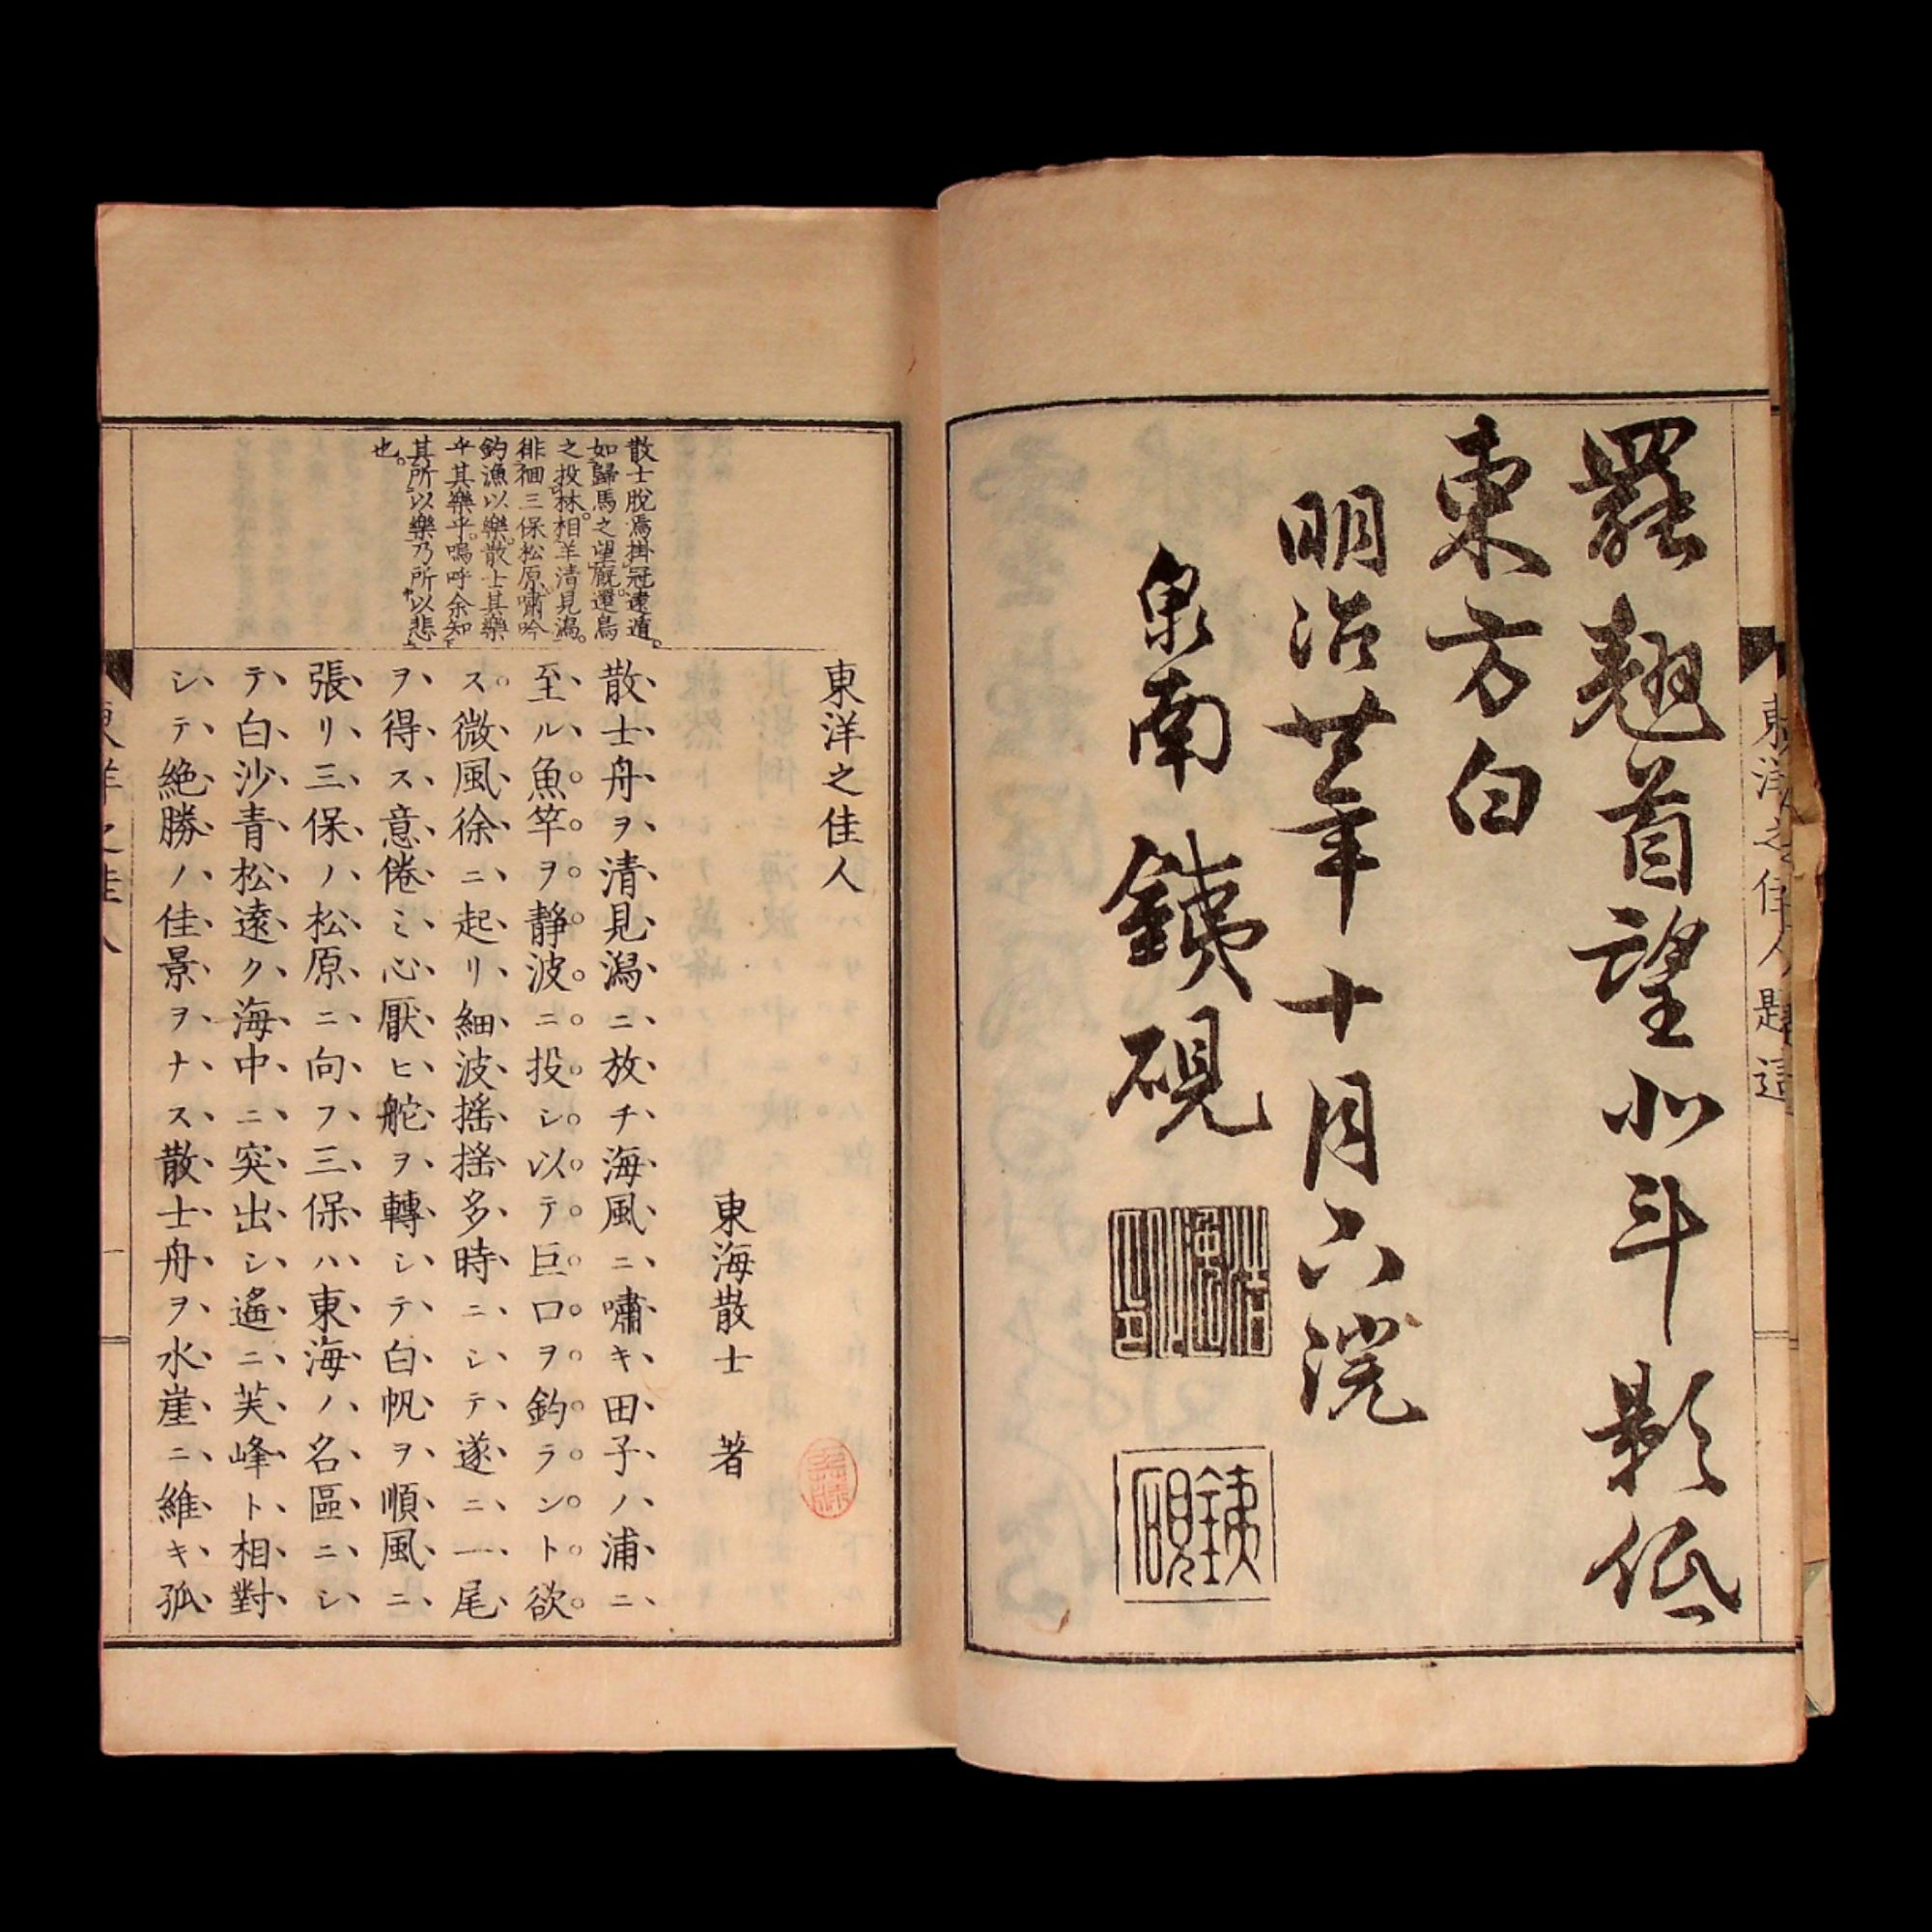 罷翹首望北斗影低
東方白
明治廿年十月六
泉南 銕硯
銕硯
東洋之佳人
東海散士 著
散士脱焉掛冠遠遁。
如歸馬之望廐還鳥
之投林。相羊清見潟。
徘徊三保松原嘯吟
釣漁以樂。散士其樂
乎其樂乎。嗚呼余知
其所以樂乃所以悲
也。
散士舟ヲ清見潟ニ放チ海風ニ嘯キ田子ノ浦ニ
至ル魚竿ヲ靜波ニ投シ以テ巨口ヲ釣ラント欲
ス微風徐ニ起リ細波搖搖多時ニシテ遂ニ一尾
ヲ得ス意倦ミ心厭ヒ舵ヲ轉シテ白帆ヲ順風ニ
張リ三保ノ松原ニ向フ三保ハ東海ノ名區ニシ
テ白沙青松遠ク海中ニ突出シ遙ニ芙峰ト相對
シテ絶勝ノ佳景ヲナス散士舟ヲ水崖ニ維キ孤